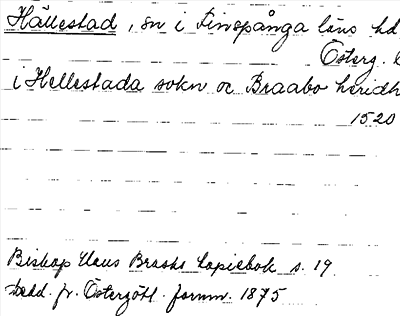 Hällestad, sn i Finspånga läns hd
Österg.
i Hellestada sokn oc Braabo heridh
1520
Biskop Hans Brasks Copiebok s. 19
Medd. fr. Östergötl. fornm. 1875